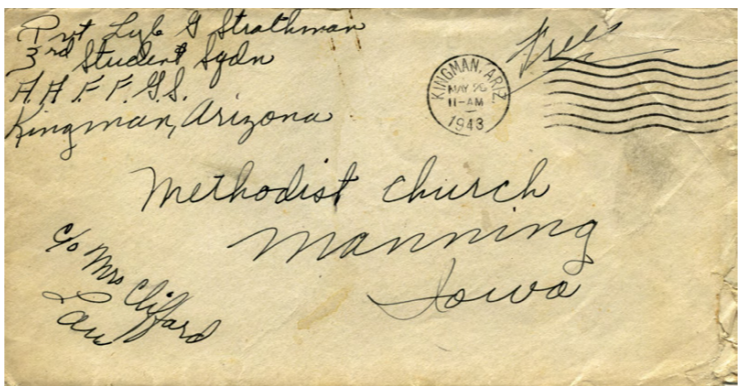 Pvt Lyle G Strathman
3rd Student Sqdn
A.A.F.F.G.S.
Kingman, Arizona
Free
KINGMAN, ARIZ.
MAY 26
11-AM
1943
Methodist Church
Manning
Iowa
c/o Mrs Clifford
Lau